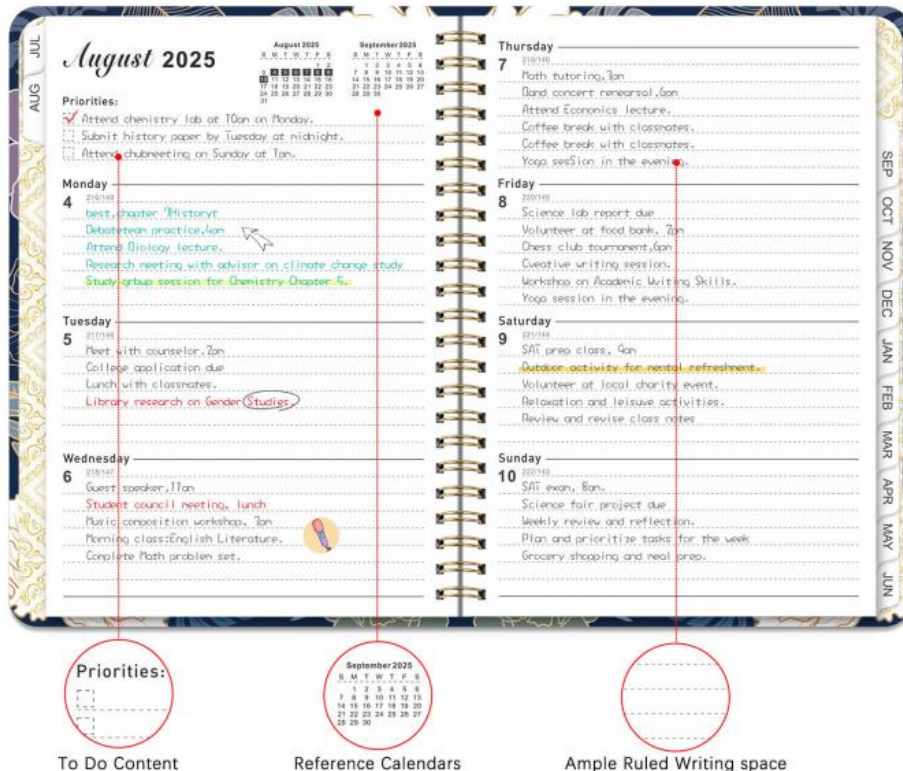 August 2025
August 2025
S M T W T F S
1 2
3 4 5 6 7 8 9
10 11 12 13 14 15 16
17 18 19 20 21 22 23
24 25 26 27 28 29 30
31
September 2025
S M T W T F S
1 2 3 4 5 6
7 8 9 10 11 12 13
14 15 16 17 18 19 20
21 22 23 24 25 26 27
28 29 30
JUL
AUG
Priorities:
Attend chemistry lab at 10am on Monday.
Submit history paper by Tuesday at midnight.
Attend chubneeting on Sunday at 1pm.
Monday
4
216/149
best,chapter 7Historyt
Debatetean practice,4pm
Attend Biology lecture.
Research neeting with advisor on climate change study
Study grbup session for Chemistry Chapter 5.
Tuesday
5
217/148
Meet with counselor,2pm
College application due
Lunch with classnates.
Library research on Gender Studies
Wednesday
6
218/147
Guest speaker,11an
Student council neeting, lunch
Music conposition workshop, 3pm
Morning class:English Literature.
Conplete Math problem set.
Thursday
7
219/146
Math tutoring,3pm
Band concert renearsal,6pm
Attend Economics lecture.
Coffee break with classnates.
Coffee break with classnates.
Yoga sesSion in the evening.
Friday
8
220/145
Science lab report due
Volunteer at food bank, 2pm
Chess club tournanent,6pm
Cveative writing session.
Workshop on Academic Wviting Skills.
Yoga session in the evening.
Saturday
9
221/144
SAT prep class, 9am
Outdoor activity for nental refreshnent.
Volunteer at local charity event.
Relaxation and leisuve activities.
Review and revise class notes
Sunday
10
222/143
SAT exan, 8am.
Science fair project due
Weekly review and reflection.
Plan and prioritize tasks for the week
Grocery shopping and neal prep.
SEP
OCT
NOV
DEC
JAN
FEB
MAR
APR
MAY
JUN
Priorities:
To Do Content
September 2025
S M T W T F S
1 2 3 4 5 6
7 8 9 10 11 12 13
14 15 16 17 18 19 20
21 22 23 24 25 26 27
28 29 30
Reference Calendars
Ample Ruled Writing space